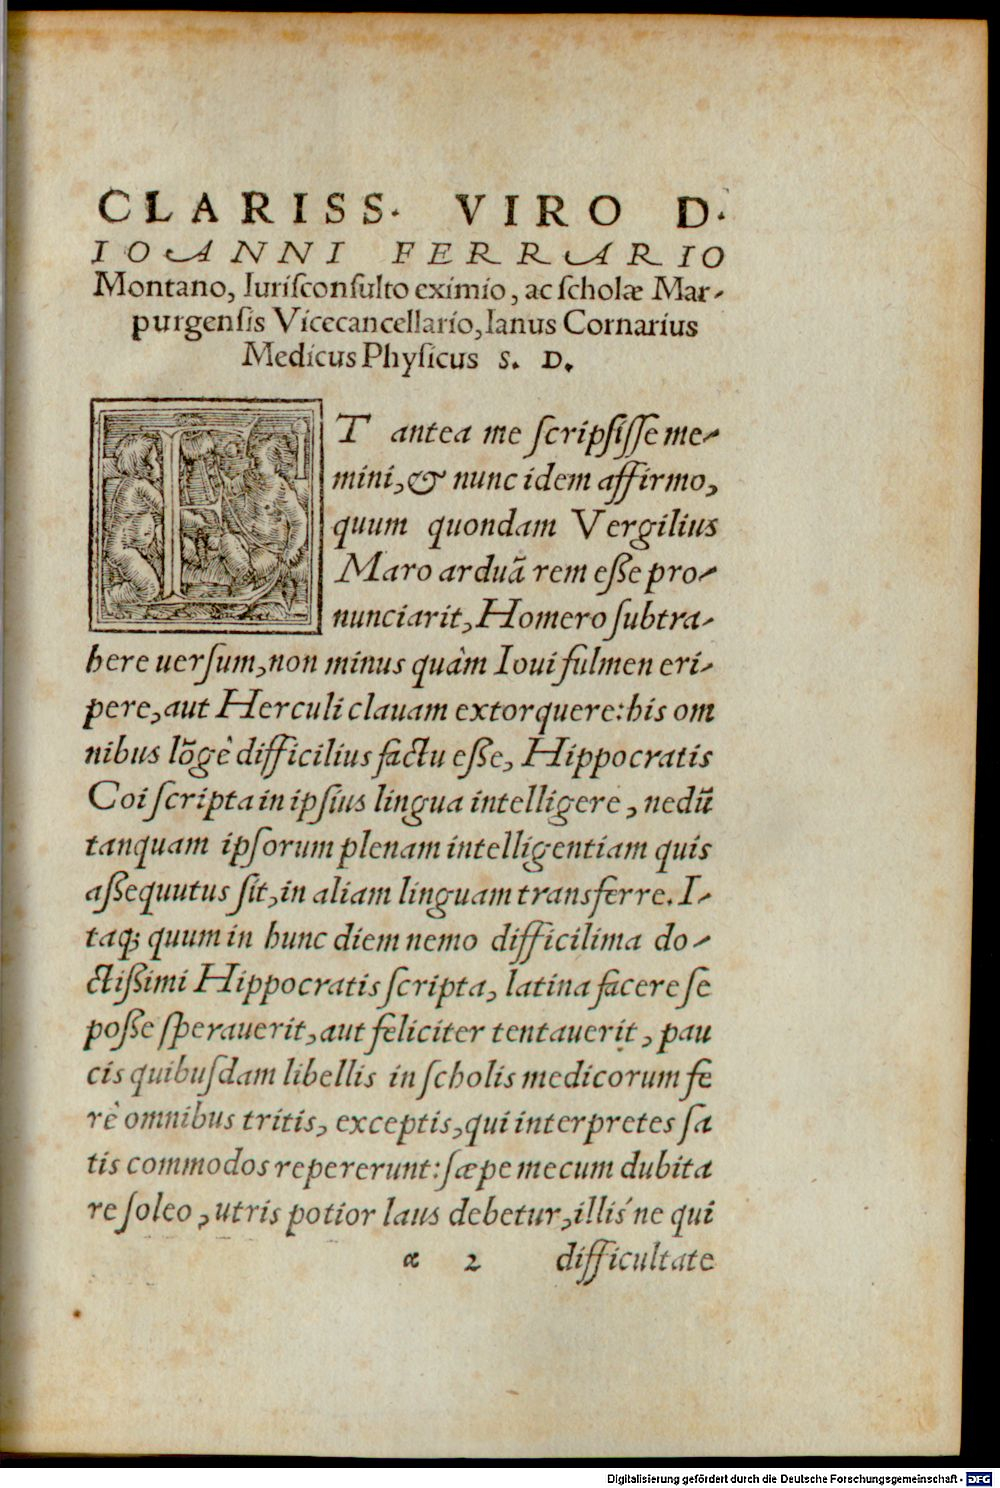 CLARISS. VIRO D.
IOANNI FERRARIO
Montano, Iurisconsulto eximio, ac scholæ Mar-
purgensis Vicecancellario, Ianus Cornarius
Medicus Physicus S. D.
VT antea me scripsisse me-
mini, & nunc idem affirmo,
quum quondam Vergilius
Maro arduã rem esse pro-
nunciarit, Homero subtra-
here uersum, non minus quàm Ioui fulmen eri-
pere, aut Herculi clauam extorquere: his om
nibus lõgè difficilius factu esse, Hippocratis
Coi scripta in ipsius lingua intelligere, nedũ
tanquam ipsorum plenam intelligentiam quis
assequutus sit, in aliam linguam transferre. I-
taq; quum in hunc diem nemo difficilima do-
ctissimi Hippocratis scripta, latina facere se
posse sperauerit, aut feliciter tentauerit, pau
cis quibusdam libellis in scholis medicorum fe
rè omnibus tritis, exceptis, qui interpretes sa
tis commodos repererunt: sæpe mecum dubita
re soleo, utris potior laus debetur, illis´ne qui
α 2 difficultate
Digitalisierung gefördert durch die Deutsche Forschungsgemeinschaft - DFG